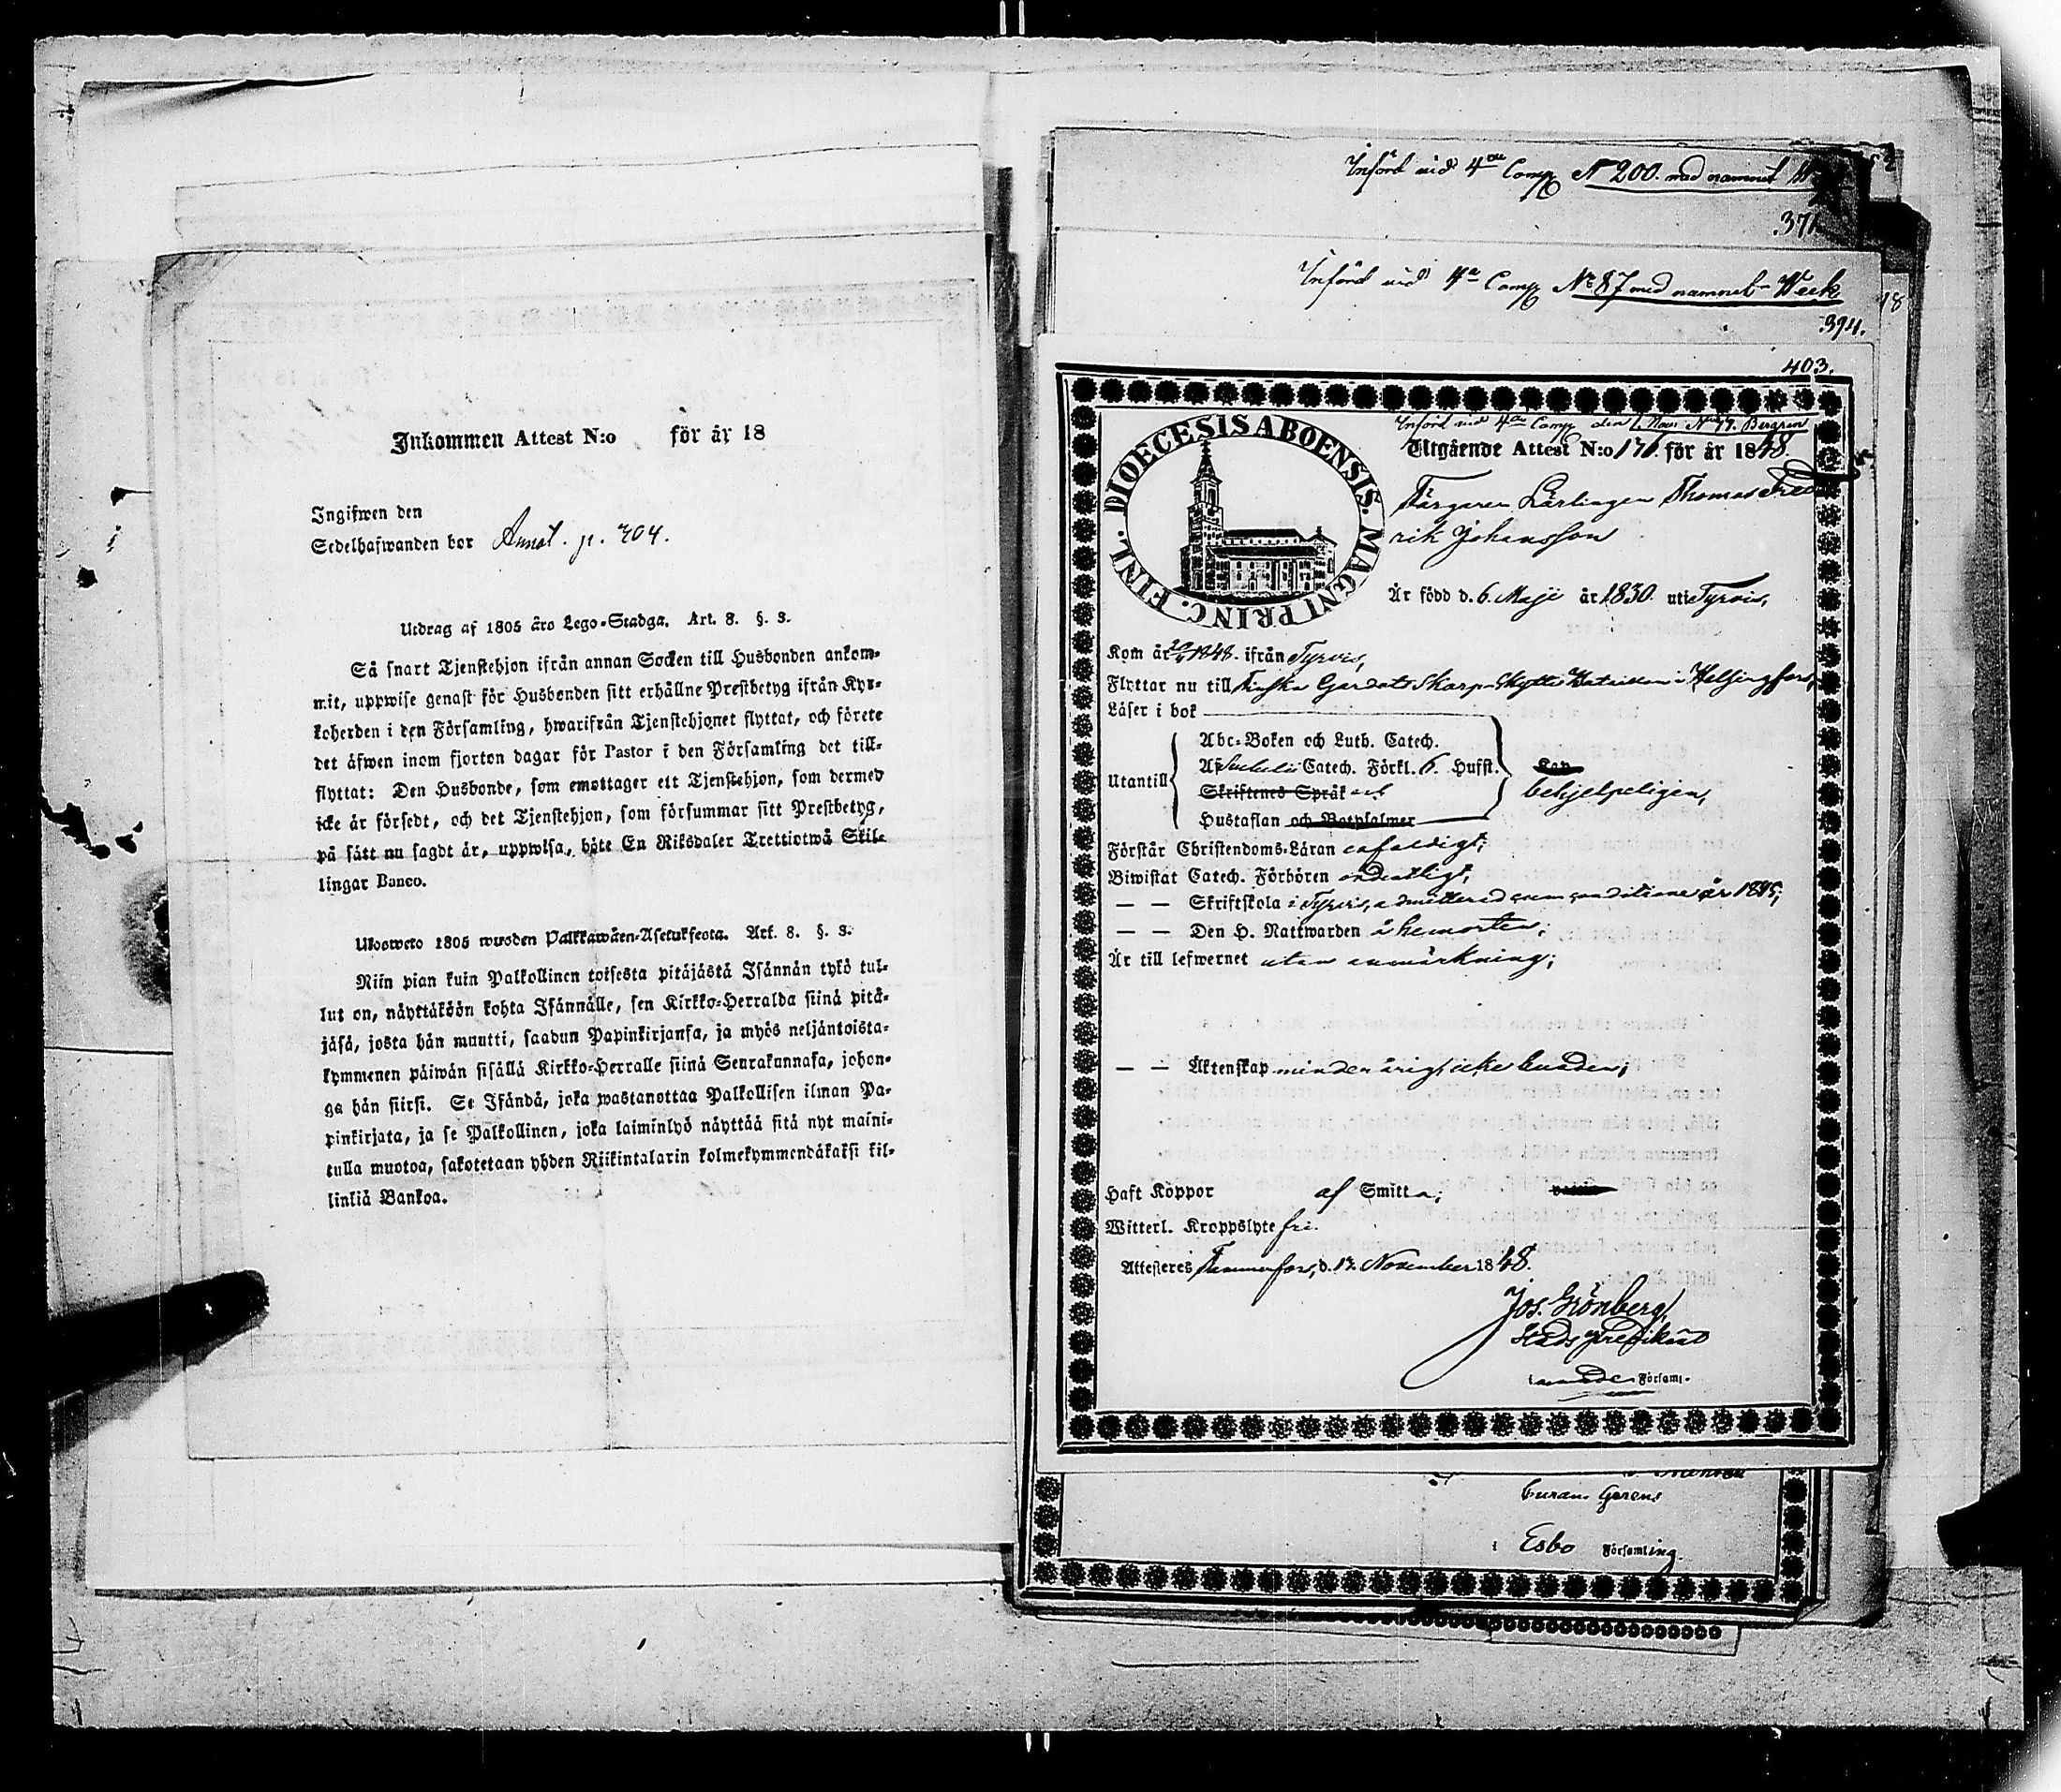 Inkommen Attest N:o för år 18
Ingifwen den
Sedelhafwanden bor Annot. p. 704.
Utdrag af 1805 års Lego-Stadga. Art. 8. §. 3.
Så snart Tjenstehjon ifrån annan Socken till Husbonden ankom-
mit, uppwise genast för Husbonden sitt erhållne Prestbetyg ifrån Kyr-
koherden i den Församling, hwarifrån Tjenstehjonet flyttat, och förete
det äfwen inom fjorton dagar för Pastor i den Församling det till-
flyttat: Den Husbonde, som emottager ett Tjenstehjon, som dermed
icke är försedt, och det Tjenstehjon, som försummar sitt Prestbetyg,
på sätt nu sagdt är, uppwisa, böte En Riksdaler Trettiotwå Skil-
lingar Banco.
Ulosweto 1805 wuoden Palkkawäen-Asetuksesta. Art. 8. §. 3.
Niin pian kuin Palkollinen toisesta pitäjästä Isännän tykö tul-
lut on, näyttäköön kohta Isännälle, sen Kirkko-Herralda siinä pitä-
jäsä, josta hän muutti, saadun Papinkirjansa, ja myös neljäntoista-
kymmenen päiwän sisällä Kirkko-Herralle siinä Seurakunnasa, johon-
ga hän siirsi. Se Isändä, joka wastanottaa Palkollisen ilman Pa-
pinkirjata, ja se Palkollinen, joka laiminlyö näyttää sitä nyt maini-
tulla muotoa, sakotetaan yhden Riikintalarin kolmekymmendäkaksi kil-
linkiä Bankoa.
Införd vid 4de Comp N 200. med namnet
371
Införd vid 4de Comp No 87 med namnet Week
394.
403.
Införd vid 4de Comp den 1 Nov: No 77. Bergren
DIOECESIS ABOENSIS. MAGNI PRINC. FINL.
Utgående Attest N:o 176. för år 1848.
Färgare Lärlingen Thomas Fred
rik Johansson
Är född d. 6 Maji år 1830. uti Tyrvis,
Kom år 1848. ifrån Tyrvis,
Flyttar nu till Finska Gardets Skarp-Skytte Bataillon i Helsingfors,
Läser i bok
Abc-Boken och Luth. Catech.
Utantill Af Svebelii Catech. Förkl. 6. Hufst. behjelpeligen,
Skriftenes Språk och
Hustaflan och Botpsalmer
Förstår Christendoms-Läran enfaldigt;
Biwistat Catech. Förhören ordentligt;
— — Skriftskola i Tyrvis, admitterad cum conditione år 1845;
— — Den H. Nattwarden å hemorten;
Är till lefwernet utan anmärkning;
— — Äktenskap minderårig, icke bunden;
Haft Koppor af Smitta;
Witterl. Kroppslyte fri.
Attesteres Tammerfors, d. 17. November 1848.
Jos. Grönberg,
Stads predikant
Församl.
Curam Gerens
i Esbo Församling.